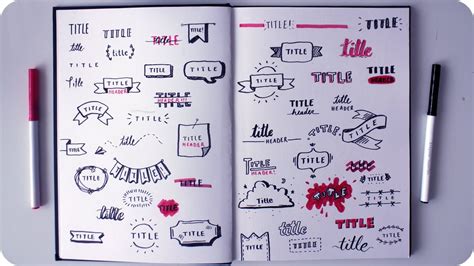 TITLE
TITLE
TITLE
TITLE
TITLE
TITLE
TITLE
TITLE
HEADER
TITLE
HEADER!!
TITLE
title
TITLE
TITLE
HEADER
TITLE
TITLE
TITLE
TITLE
TITLE
TITLE
TITLE!!
TITLE
TITLE
title
TITLE
TITLE
TITLE
TITLE
title
title
HEADER
title
header
TITLE
TITLE
TITLE
HEADER
TITLE
title
HEADER
TITLE
TITLE
TITLE
title
TITLE
title
TITLE